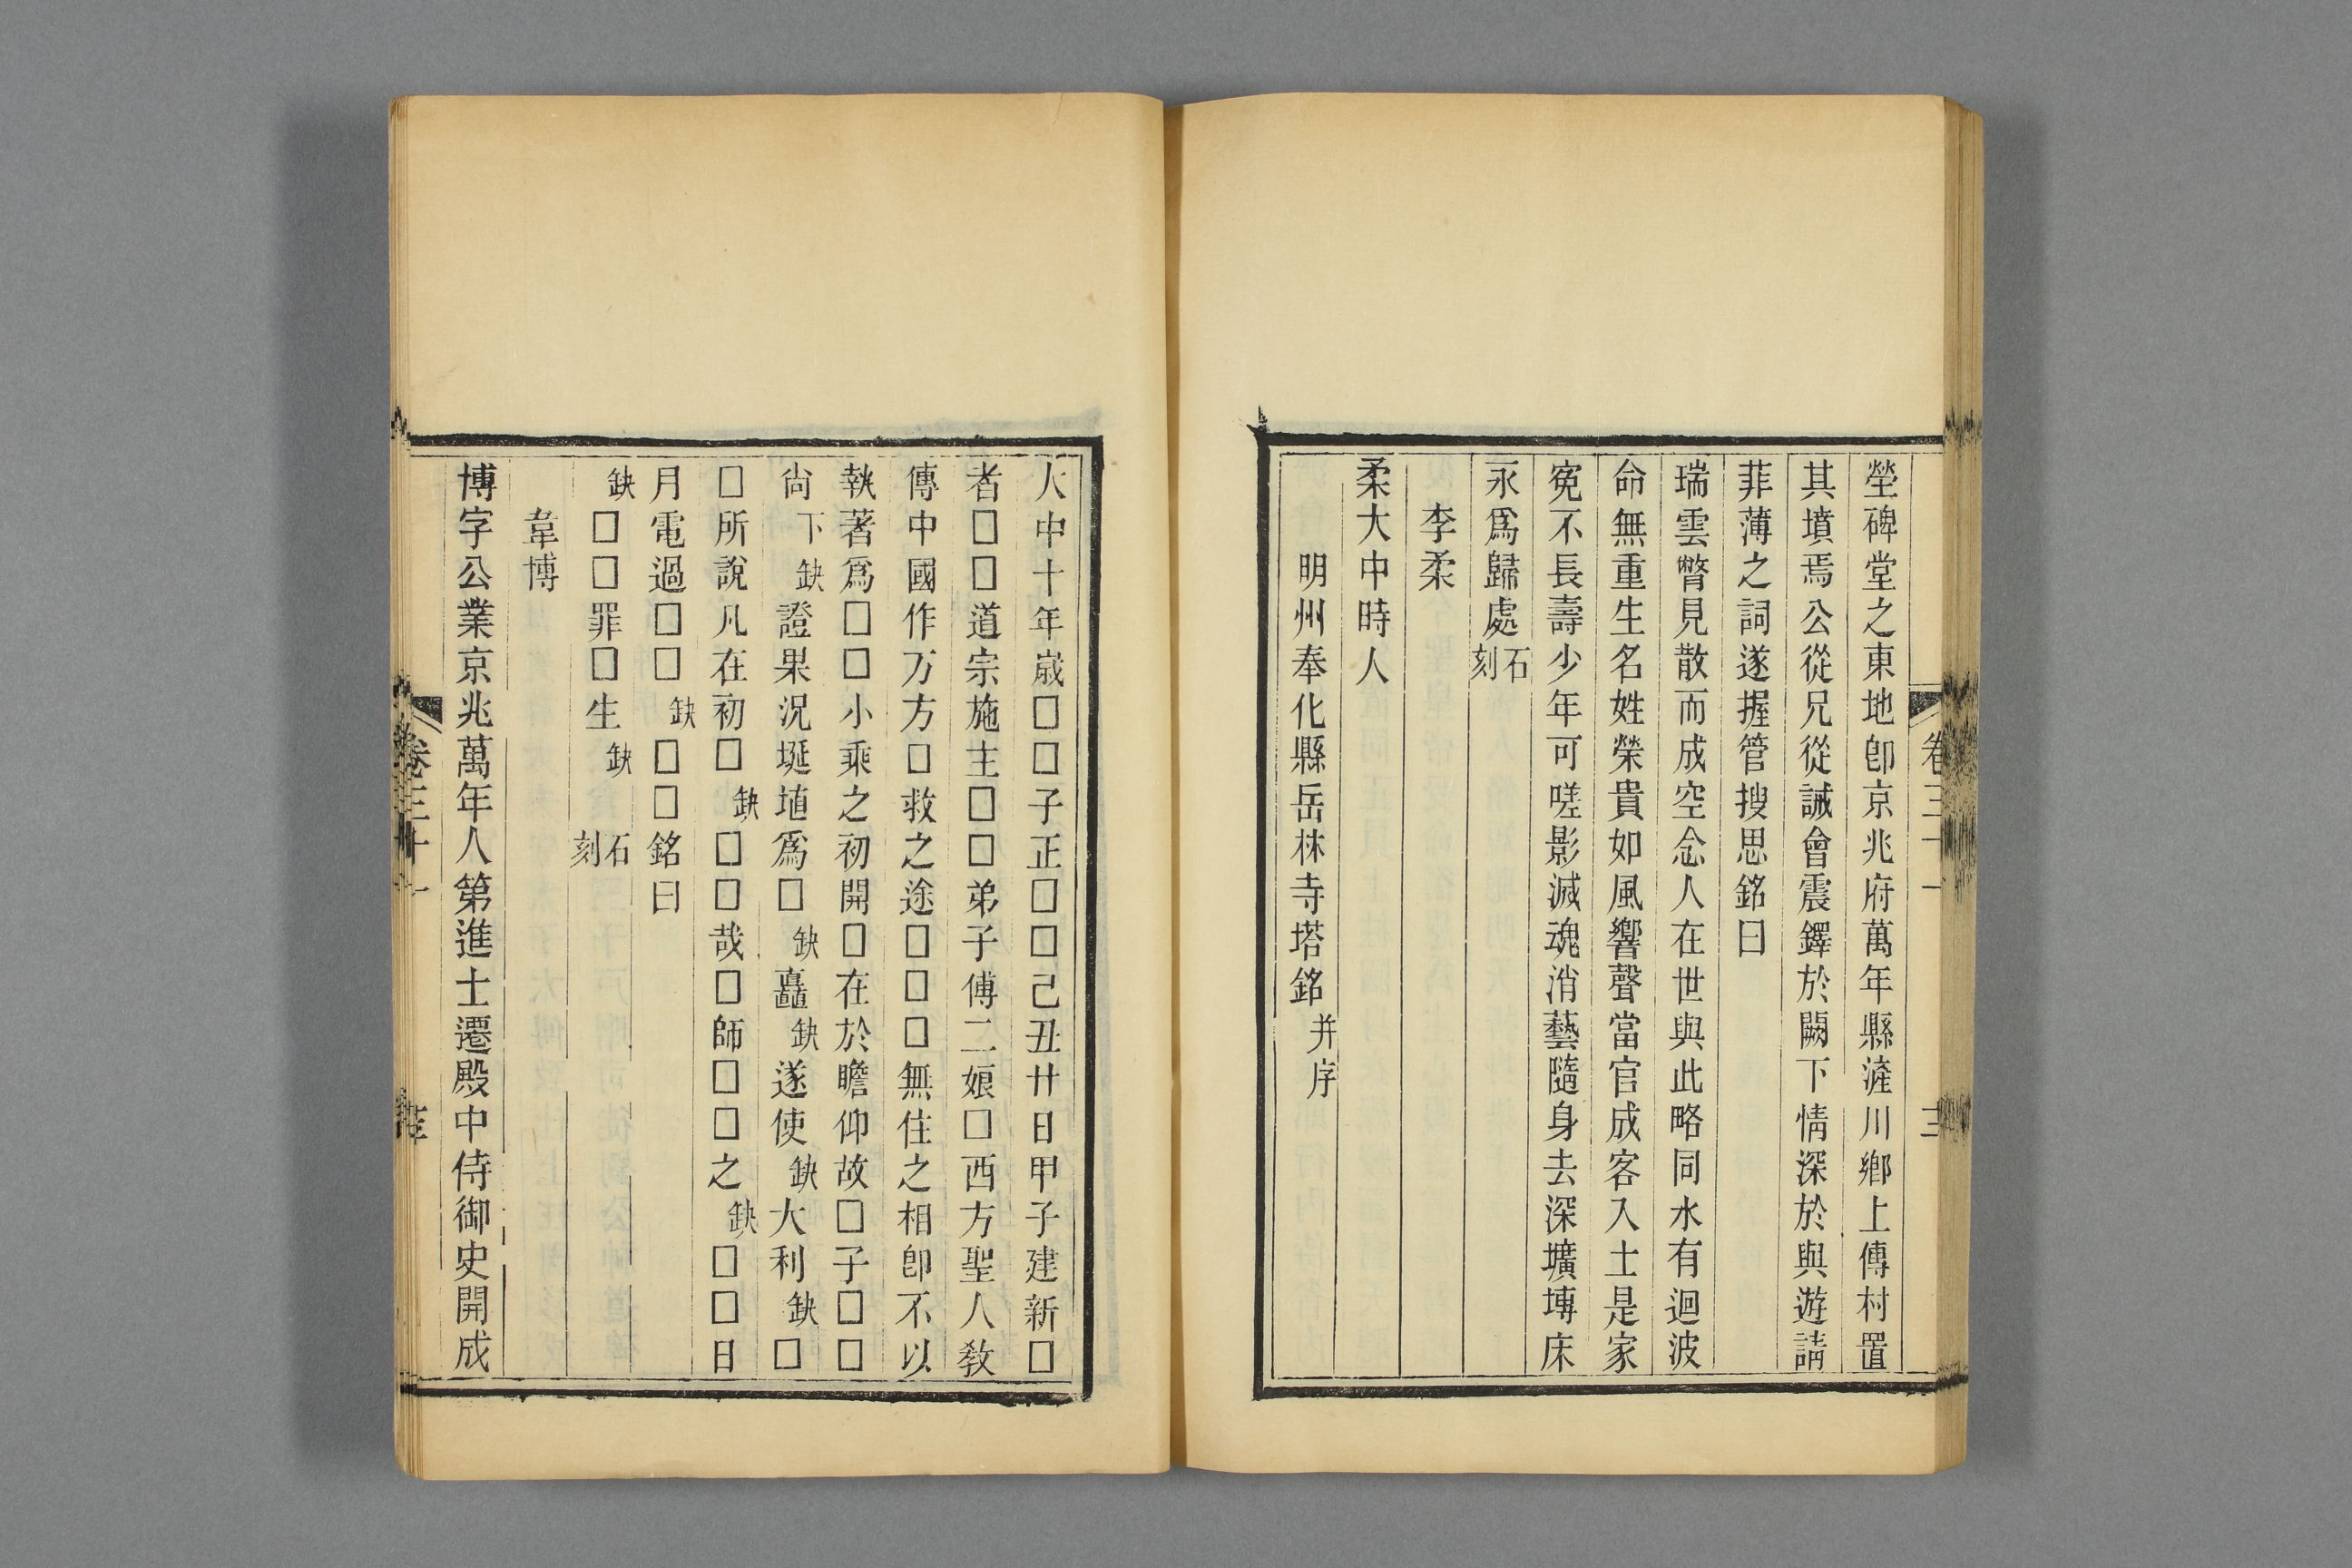 塋碑堂之東地卽京兆府萬年縣滻川鄉上傅村置
其墳焉公從兄從誠會震鐸於闕下情深於與遊請
菲薄之詞遂握管搜思銘曰
瑞雲瞥見散而成空念人在世與此略同水有迴波
命無重生名姓榮貴如風響聲當官成客入土是家
寃不長壽少年可嗟影滅魂消藝隨身去深壙塼床
永爲歸處石刻
李柔
柔大中時人
明州奉化縣岳林寺塔銘并序
大中十年歲□□子正□□己丑廿日甲子建新□
者□□道宗施主□□弟子傅二娘□西方聖人敎
傳中國作万方□救之途□□□無住之相卽不以
執著爲□□小乘之初開□在於瞻仰故□子□□
尙下缺證果況埏埴爲□缺矗缺遂使缺大利缺□
□所說凡在初□缺□□哉□師□□之缺□□日
月電過□□缺□□銘曰
缺□□罪□生缺石刻
韋博
博字公業京兆萬年人第進士遷殿中侍御史開成
卷三十一